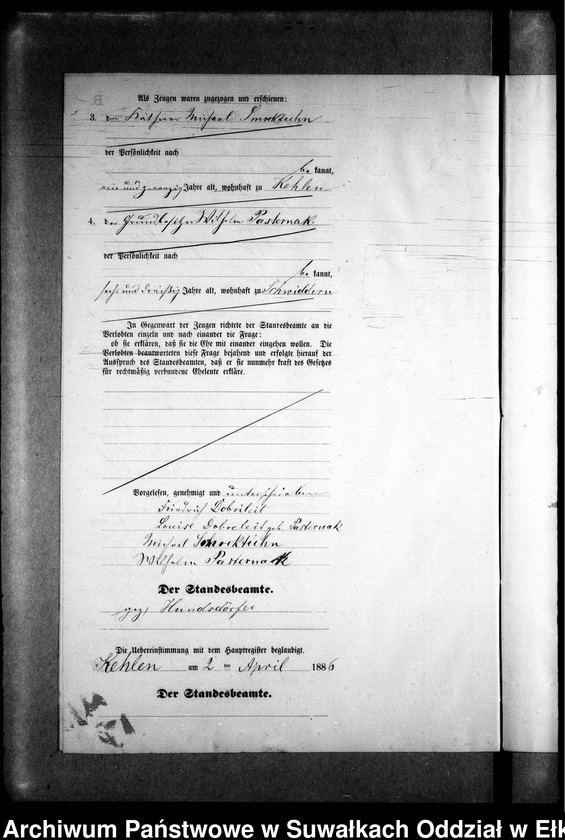 B
Als Zeugen waren zugezogen und erschienen:
3. der Käthner Michael Smocktuhn
der Persönlichkeit nach
be kannt,
ein und zwanzig Jahre alt, wohnhaft zu Kehlen
4. der Grundbesitzer Wilhelm Pasternak.
der Persönlichkeit nach
be kannt,
sechs und dreißig Jahre alt, wohnhaft zu Schwiddern
In Gegenwart der Zeugen richtete der Standesbeamte an die
Verlobten einzeln und nach einander die Frage:
ob sie erklären, daß sie die Ehe mit einander eingehen wollen. Die
Verlobten beantworteten diese Frage bejahend und erfolgte hierauf der
Ausspruch des Standesbeamten, daß er sie nunmehr kraft des Gesetzes
für rechtmäßig verbundene Eheleute erkläre.
Vorgelesen, genehmigt und unterschrieben
Friedrich
Louise geb. Pasternak
Michael
Wilhelm Pasternack
Der Standesbeamte.
gez. Hundsdörfer
Die Uebereinstimmung mit dem Hauptregister beglaubigt.
Kehlen am 2 ten April 1886
Der Standesbeamte.
Archiwum Państwowe w Suwałkach Oddział w Ełk